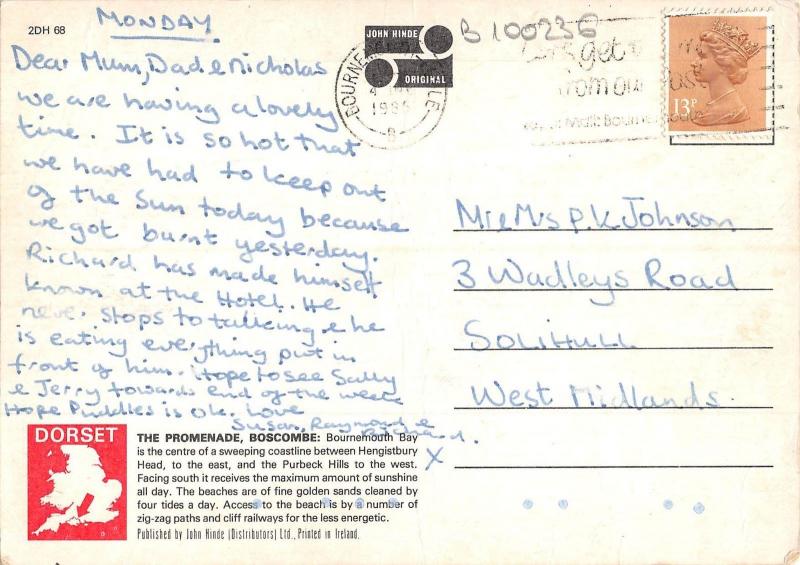 2DH 68
MONDAY
Dear Mum, Dad & Nicholas
we are having a lovely
time. It is so hot that
we have had to keep out
of the Sun today because
we got burnt yesterday.
Richard has made himself
known at the Hotel. He
never stops to talking & he
is eating everything put in
front of him. Hope to see Sally
& Jerry towards end of the week
Hope Puddles is OK. Love
Susan, Raymond &
Richard.
X
JOHN HINDE
ORIGINAL
B 100236
13P
Mr & Mrs P K Johnson
3 Wadleys Road
SOLIHULL
West Midlands.
DORSET
THE PROMENADE, BOSCOMBE: Bournemouth Bay
is the centre of a sweeping coastline between Hengistbury
Head, to the east, and the Purbeck Hills to the west.
Facing south it receives the maximum amount of sunshine
all day. The beaches are of fine golden sands cleaned by
four tides a day. Access to the beach is by a number of
zig-zag paths and cliff railways for the less energetic.
Published by John Hinde (Distributors) Ltd., Printed in Ireland.